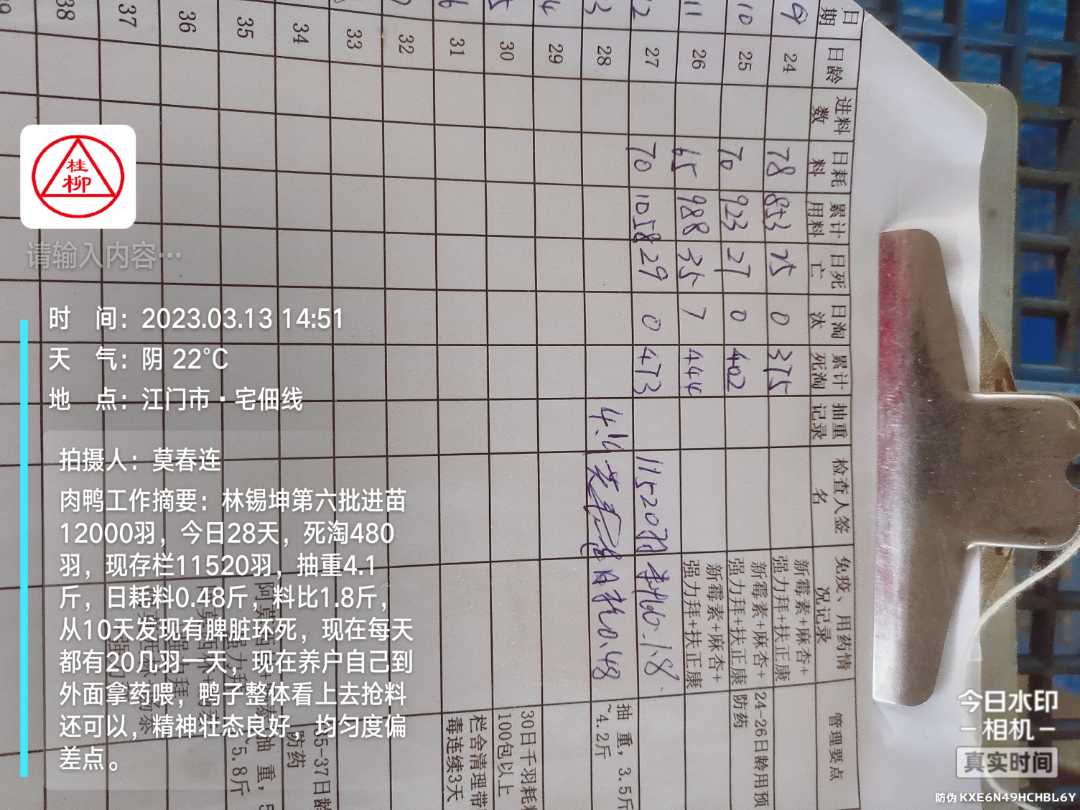 日期 日龄 进料数 日耗料 累计用料 日死亡 日淘汰 累计死淘 抽重记录 检查人签名 免疫、用药情况记录 管理要点
9 24 78 853 25 0 375 新霉素+麻杏+强力拜+扶正康
10 25 70 923 27 0 402 新霉素+麻杏+强力拜+扶正康 24-26日龄用预防药
11 26 65 988 35 7 444 新霉素+麻杏+强力拜+扶正康
27 70 1058 29 0 473 11520羽 1.8
28 4.1 日耗0.48 抽重,3.5斤~4.2斤
29
30 30日千羽耗料100包以上
31 栏舍清理带毒连续3天
32
33
34
35
36
37
38
桂柳
请输入内容…
时 间：2023.03.13 14:51
天 气：阴 22℃
地 点：江门市·宅佃线
拍摄人：莫春连
肉鸭工作摘要：林锡坤第六批进苗
12000羽，今日28天，死淘480
羽，现存栏11520羽，抽重4.1
斤，日耗料0.48斤，料比1.8斤，
从10天发现有脾脏环死，现在每天
都有20几羽一天，现在养户自己到
外面拿药喂，鸭子整体看上去抢料
还可以，精神壮态良好，均匀度偏
差点。
今日水印
相机
真实时间
防伪 KXE6N49HCHBL6Y